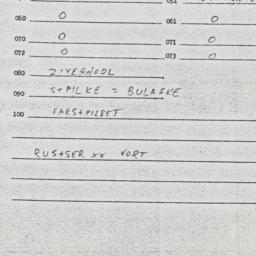 060 0 061 0
070 0 071 0
072 0 073 0
080 ZIVERNODL
090 S+PILKE = BULASKE
100 FARS+PILBET
RUS+SER xx VORT